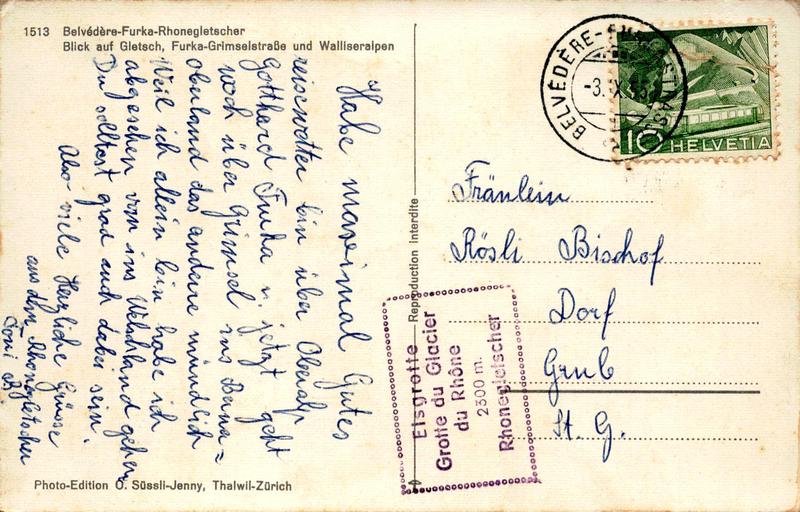 1513 Belvédère-Furka-Rhonegletscher
Blick auf Gletsch, Furka-Grimselstraße und Walliseralpen
Habe maximal Gutes
reisewetter bin über Oberalp
Gotthard Furka u. jetzt geht
noch über Grimsel ins Berna=
Oberland das andere mündlich
Weil ich allein bin habe ich
abgesehen von ins Welschland gehen
Du solltest grad auch dabei sein.
Also viele Herzliche Grüsse
aus dem Rhonegletscher
Toni B
Photo-Edition O. Süssli-Jenny, Thalwil-Zürich
Reproduction interdite
BELVÉDÈRE-FURKASTRASSE
-3.IX.
10 HELVETIA
Fräulein
Rösli Bischof
Dorf
Grub
St. G.
Eisgrotte
Grotte du Glacier
du Rhône
2300 m.
Rhonegletscher